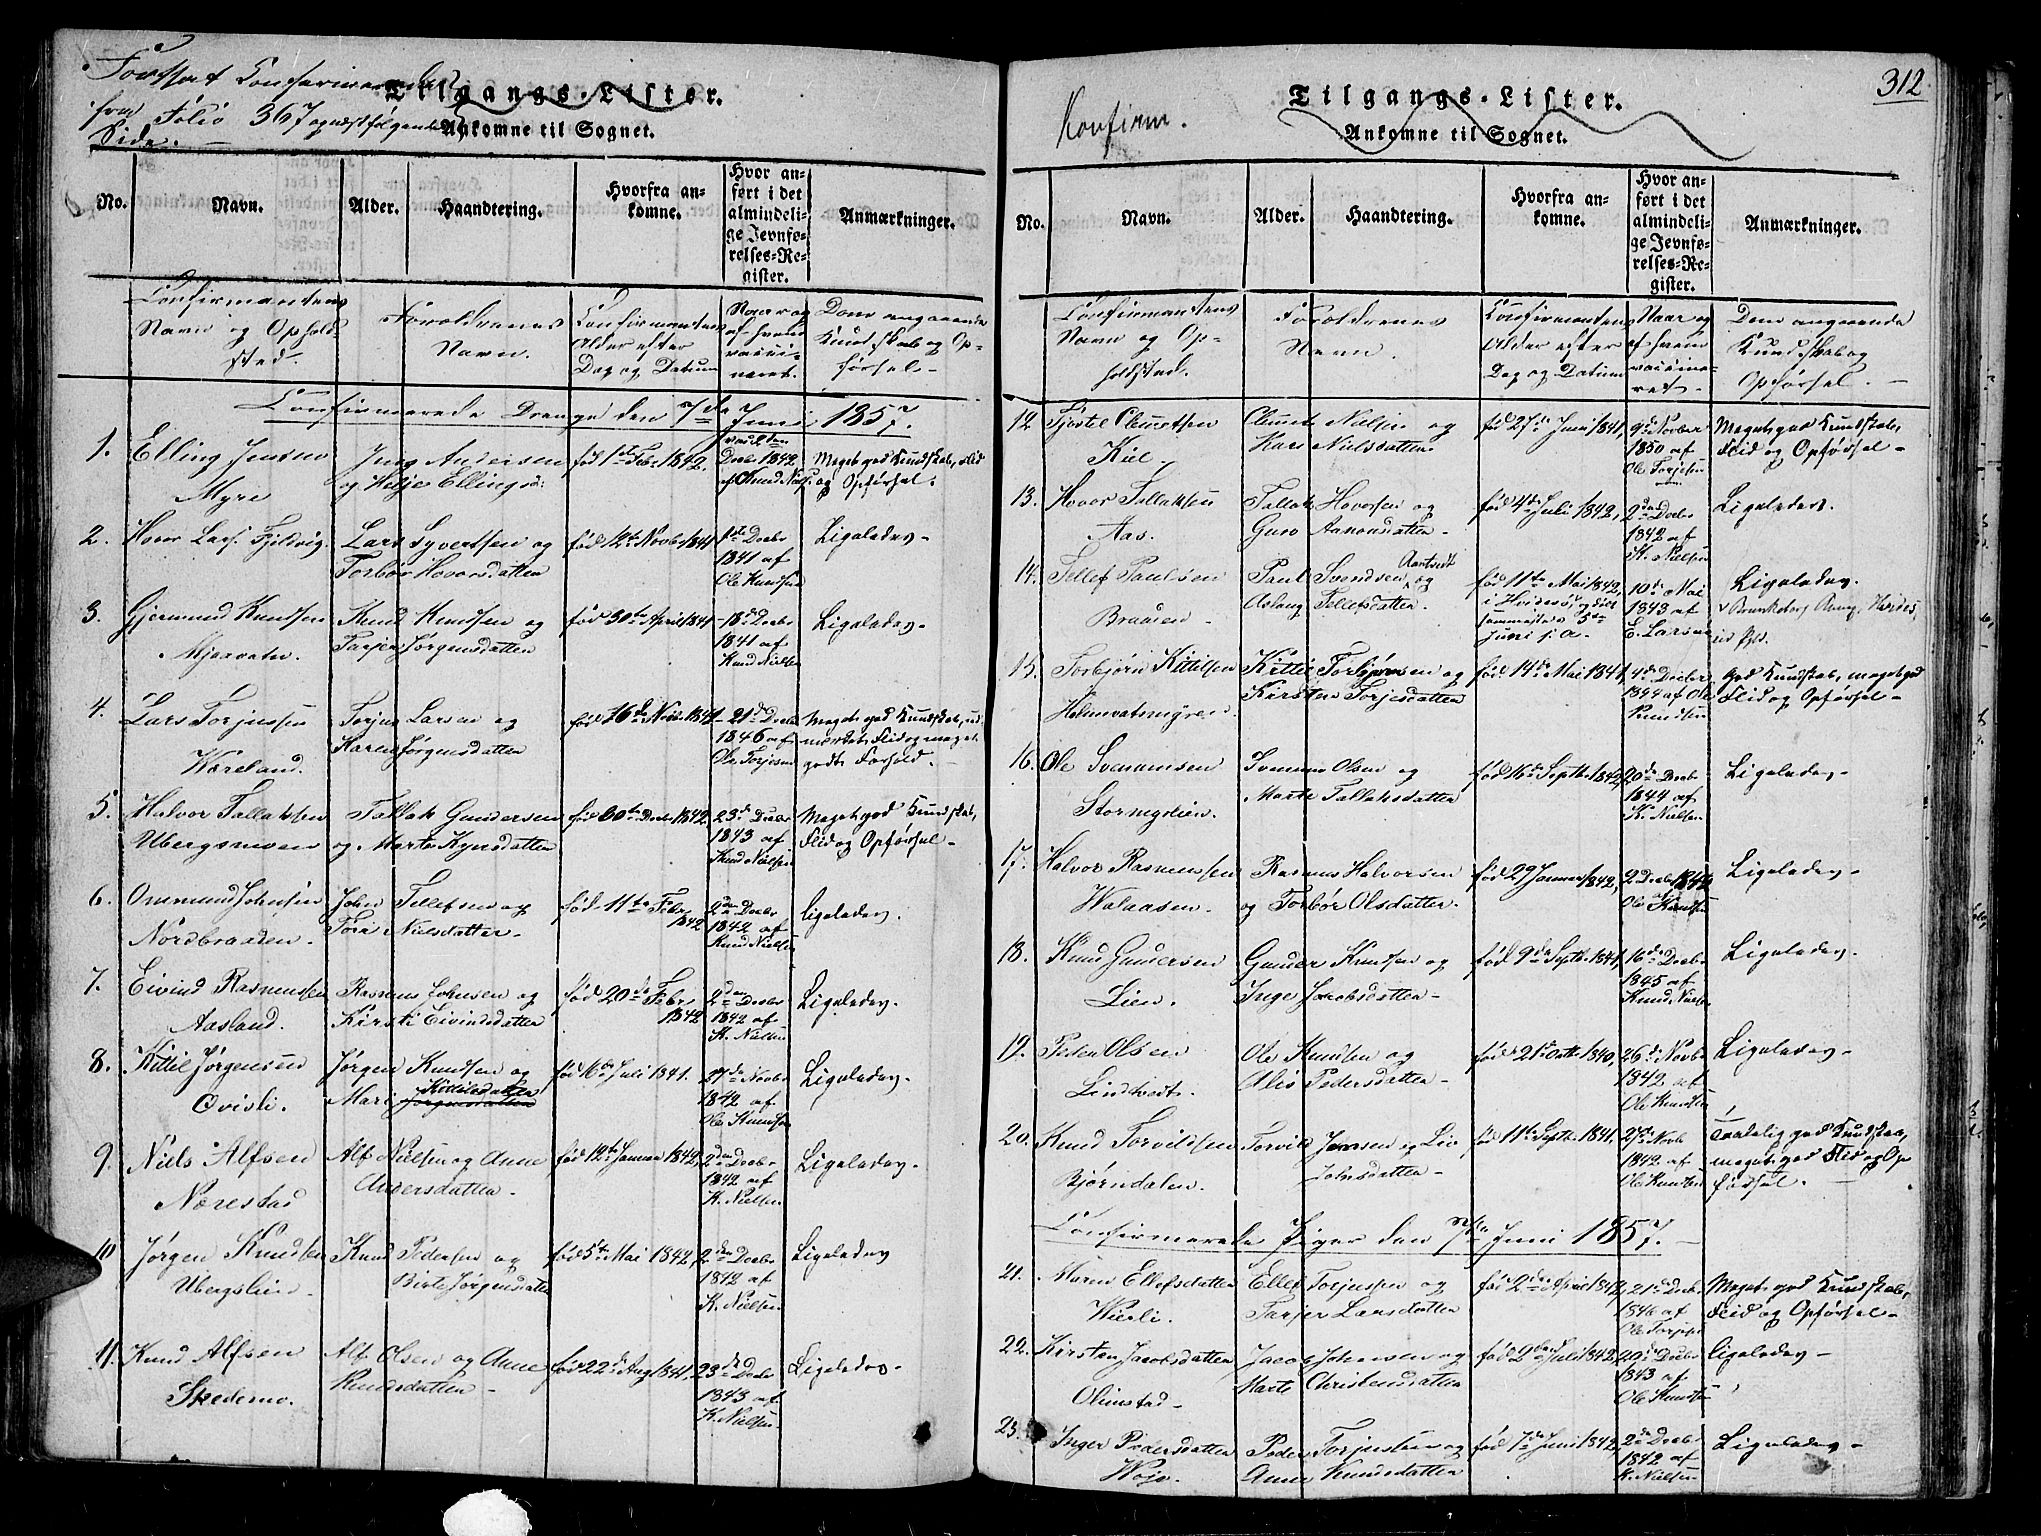 Fortsat Confirmerede
fra Folio 367 og næstfølgende
Side.
Tilgangs-Lister.
Ankomne til Sognet.
No.
Navn.
Alder.
Haandtering.
Hvorfra an-
komne.
Hvor an-
ført i det
almindeli-
ge Jevnfø-
relses-Re-
gister.
Anmærkninger.
Confirmantens
Navn og Opholds
sted.
Forældrenes
Navn.
Confirmantens
Alder efter
Dag og Datum
Naar og
af hvem
vacci-
neret.
Dom angaaende
Kundskab og Op-
førsel.
Confirmerede Drenge den 7de Juni 1857.
1. Elling Jensen
Myre
Jens Andersen
og Helje Ellingsd:
født 1ste Febr. 1842.
Decbr 1842
af Knud Niels.
Meget god Kundskab, Flid
og Opførsel.
2. Hover Lars. Fjeldvig
Lars Syvertsen og
Torbør Hovorsdatter
født 12te Novbr 1841
1ste Decbr
1841 af
Ole Knudsen
Ligeledes
3. Gjermund Knudsen
Mjaavatn.
Knud Knudsen og
Tarjer Jørgensdatter
født 30te April 1841
18de Decbr
1841 af
Knud Nielsen
Ligeledes
4. Lars Torjussen
Væreland.
Torjus Larsen og
Karen Jørgensdatter
født 26de Novbr 1841
21de Decbr
1846 af
Ole Torjesen
Meget god Kundskab, ud
mærket Flid og meget
godt Forhold.
5. Halvor Tallaksen
Ubergsmoen
Tallak Gundersen
og Marte Kynsdatter
23de Decbr
1843 af
Knud Nielsen
Meget god Kundskab,
Flid og Opførsel
6. Ommund Johnsen
Nordbraaden.
John Tellefsen og
Tora Nielsdatter
født 11te Febr
1842
2den Decbr
1842 af
Knud Nielsen
Ligeledes.
7. Eivind Rasmussen
Aasland.
Rasmus Johnsen og
Kirsti Eivindsdatter
født 20de Febr
1842
2den Decbr
1842 af
K. Nielsen
Ligeledes.
8. Kittil Jørgensen
Qvisli.
Jørgen Knudsen og
Mari Kittilsdatter
født 16de Juli 1841.
27de Novbr
1842 af
Ole Knudsen
Ligeledes.
9. Niels Alfsen
Nærestad
Alf Nielsen og Anne
Andersdatter.
født 12te Januar 1842,
2den Decbr
1842 af
K. Nielsen
Ligeledes
10 Jørgen Knudsen
Ubergslien
Knud Pedersen og
Birte Jørgensdatter
født 5te Mai 1842,
2den Decbr
1842 af
K. Nielsen
Ligeledes
11. Knud Alfsen
Skedemo.
Alf Olsen og Anne
Knudsdatter
født 22de Aug 1841,
23de Decbr
1843 af
K. Nielsen
Ligeledes
312
Konfirm.
Tilgangs-Lister.
Ankomne til Sognet.
No.
Navn.
Alder.
Haandtering.
Hvorfra an-
komne.
Hvor an-
ført i det
almindeli-
ge Jevnfø-
relses-Re-
gister.
Anmærkninger.
Confirmantens
Navn og Op-
holdsted.
Forældrenes
Navn.
Confirmantens
Alder efter
Dag og Datum
Naar og
af hvem
vaccine-
ret.
Dom angaaende
Kundskab og
Opførsel.
12. Fjøstel Clemetsen
Kiil
Clemet Nielsen og
Kari Nielsdatter
født 27de Juni 1841,
9de Novbr
1850 af
Ole Torjesen
Meget god Kundskab,
Flid og Opførsel
13. Hovor Tallaksen
Aas.
Tallak Hovorsen og
Guro Aanonsdatter
født 4de Juli 1842,
2den Decbr
1842 af
K. Nielsen
Ligeledes.
14. Tellef Paulsen
Braaden
Paul Svendsen og
Aslaug Tellefsdatter.
født 11te Mai 1842,
5te
Juni s. a.
10de Mai
1843 af
E. Larsen
Ligeledes.
15. Torbjørn Kittilsen
Holmvatnmyren.
Kittil Torbjørnsen og
Kirsten Torjesdatter
født 14de Mai 1841,
4de Decbr
1844 af Ole
Knudsen
God Kundskab, meget god
Flid og Opførsel
16. Ole Svennumsen
Stormyrlien.
Svennum Olsen og
Marte Tallaksdatter
født 16de Septbr 1842,
20de Decbr
1844 af
K. Nielsen
Ligeledes
17. Halvor Rasmussen
Walaasen.
Rasmus Halvorsen
og Torbør Olsdatter.
født 29 Januar 1842,
2 Decbr 1842
Ole Knudsen
Ligeledes
18. Knud Gundersen
Lien.
Gunder Knudsen og
Inge Jacobsdatter
født 9de Septbr 1841,
16de Decbr
1845 af
Knud Nielsen
Ligeledes.
19. Peder Olsen
Lindtvedt.
Ole Knudsen og
Alis Pedersdatter
født 21de Octbr 1840,
26de Novbr
1842 af
Ole Knudsen
Ligeledes
20. Knud Torvildsen
Bjørndalen.
Torvild Jensen og Liv
Johnsdatter
født 11te Septbr 1841,
27de Novb
1842 af
Ole Knudsen
Taalelig god Kundskab,
meget god Flid og Op
førsel.
Confirmerede Piger den 7de Juni 1857.
21. Maren Ellefsdatter
Wierli.
Ellef Torjussen og
Tarjer Larsdatter
født 2den April 1842,
21de Decbr
1846 af
Ole Torjesen
Meget god Kundskab,
Flid og Opførsel
22. Kirsten Jacobsdatter
Olimstad
Jacob Johnsen og
Marte Christensdatter
født 2den Juli 1842,
20de Decbr
1843 af
Ole Knudsen
Ligeledes
23. Inger Pedersdatter
Woje.
Peder Torjussen og
Anne Knudsdatter
født 7de Juni 1842,
2de Decbr
1842 af
K. Nielsen
Ligeledes